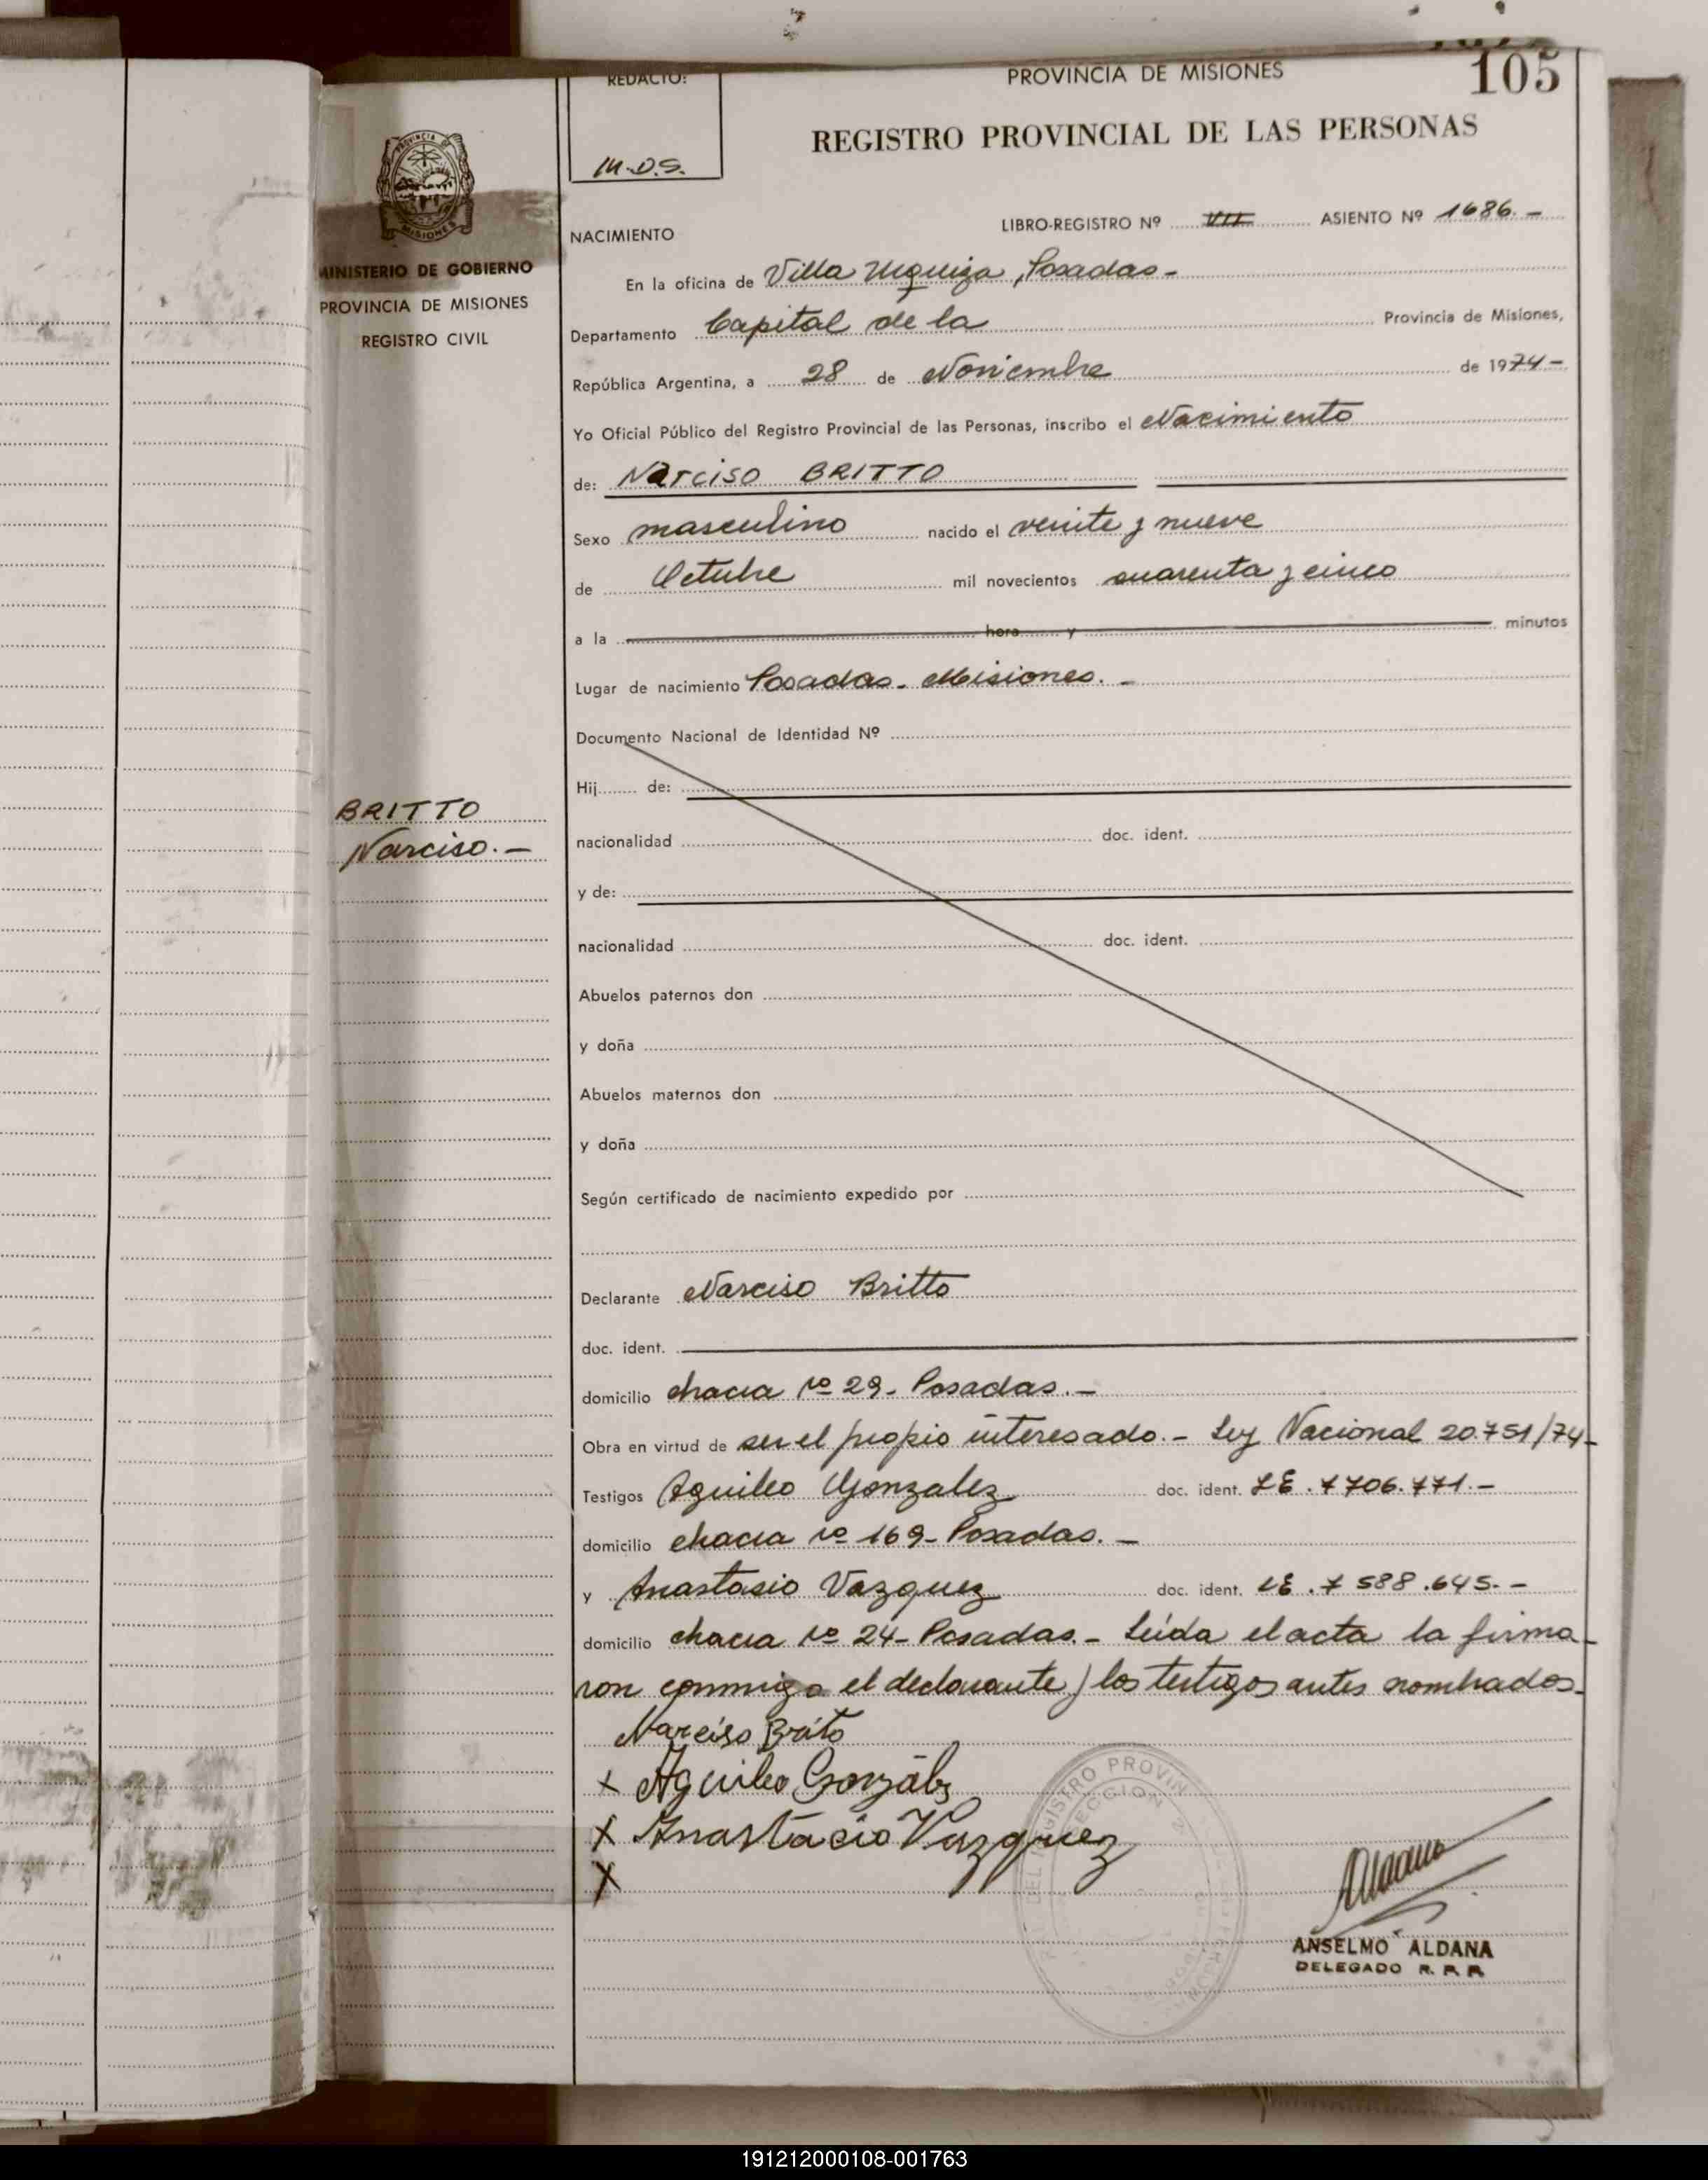 REDACTO:
M.D.S.
PROVINCIA DE MISIONES
105
REGISTRO PROVINCIAL DE LAS PERSONAS
PROVINCIA
MISIONES
MINISTERIO DE GOBIERNO
PROVINCIA DE MISIONES
REGISTRO CIVIL
NACIMIENTO
LIBRO-REGISTRO Nº VII ASIENTO Nº 1686.-
En la oficina de Villa Urquiza, Posadas-
Departamento Capital de la Provincia de Misiones,
República Argentina, a 28 de Noviembre de 1974-
Yo Oficial Público del Registro Provincial de las Personas, inscribo el Nacimiento
de: Narciso BRITTO
Sexo masculino nacido el veinte y nueve
de Octubre mil novecientos cuarenta y cinco
a la hora y minutos
Lugar de nacimiento Posadas- Misiones.-
Documento Nacional de Identidad Nº
Hij de:
BRITTO
Narciso.-
nacionalidad doc. ident.
y de:
nacionalidad doc. ident.
Abuelos paternos don
y doña
Abuelos maternos don
y doña
Según certificado de nacimiento expedido por
Declarante Narciso Britto
doc. ident.
domicilio chacra nº 29- Posadas.-
Obra en virtud de ser el propio interesado.- Ley Nacional 20.751/74-
Testigos Aquileo Gonzalez doc. ident. LE. 7706.771.-
domicilio chacra nº 169- Posadas.-
y Anastasio Vazquez doc. ident. LE. 7588.645.-
domicilio chacra nº 24- Posadas.- Leída el acta la firma-
ron conmigo el declarante y los testigos antes nombrados.
Narciso Brito
x Aquileo Gonzálz
x Anastacio Vazquez
x
ANSELMO ALDANA
DELEGADO R. P. P.
191212000108-001763